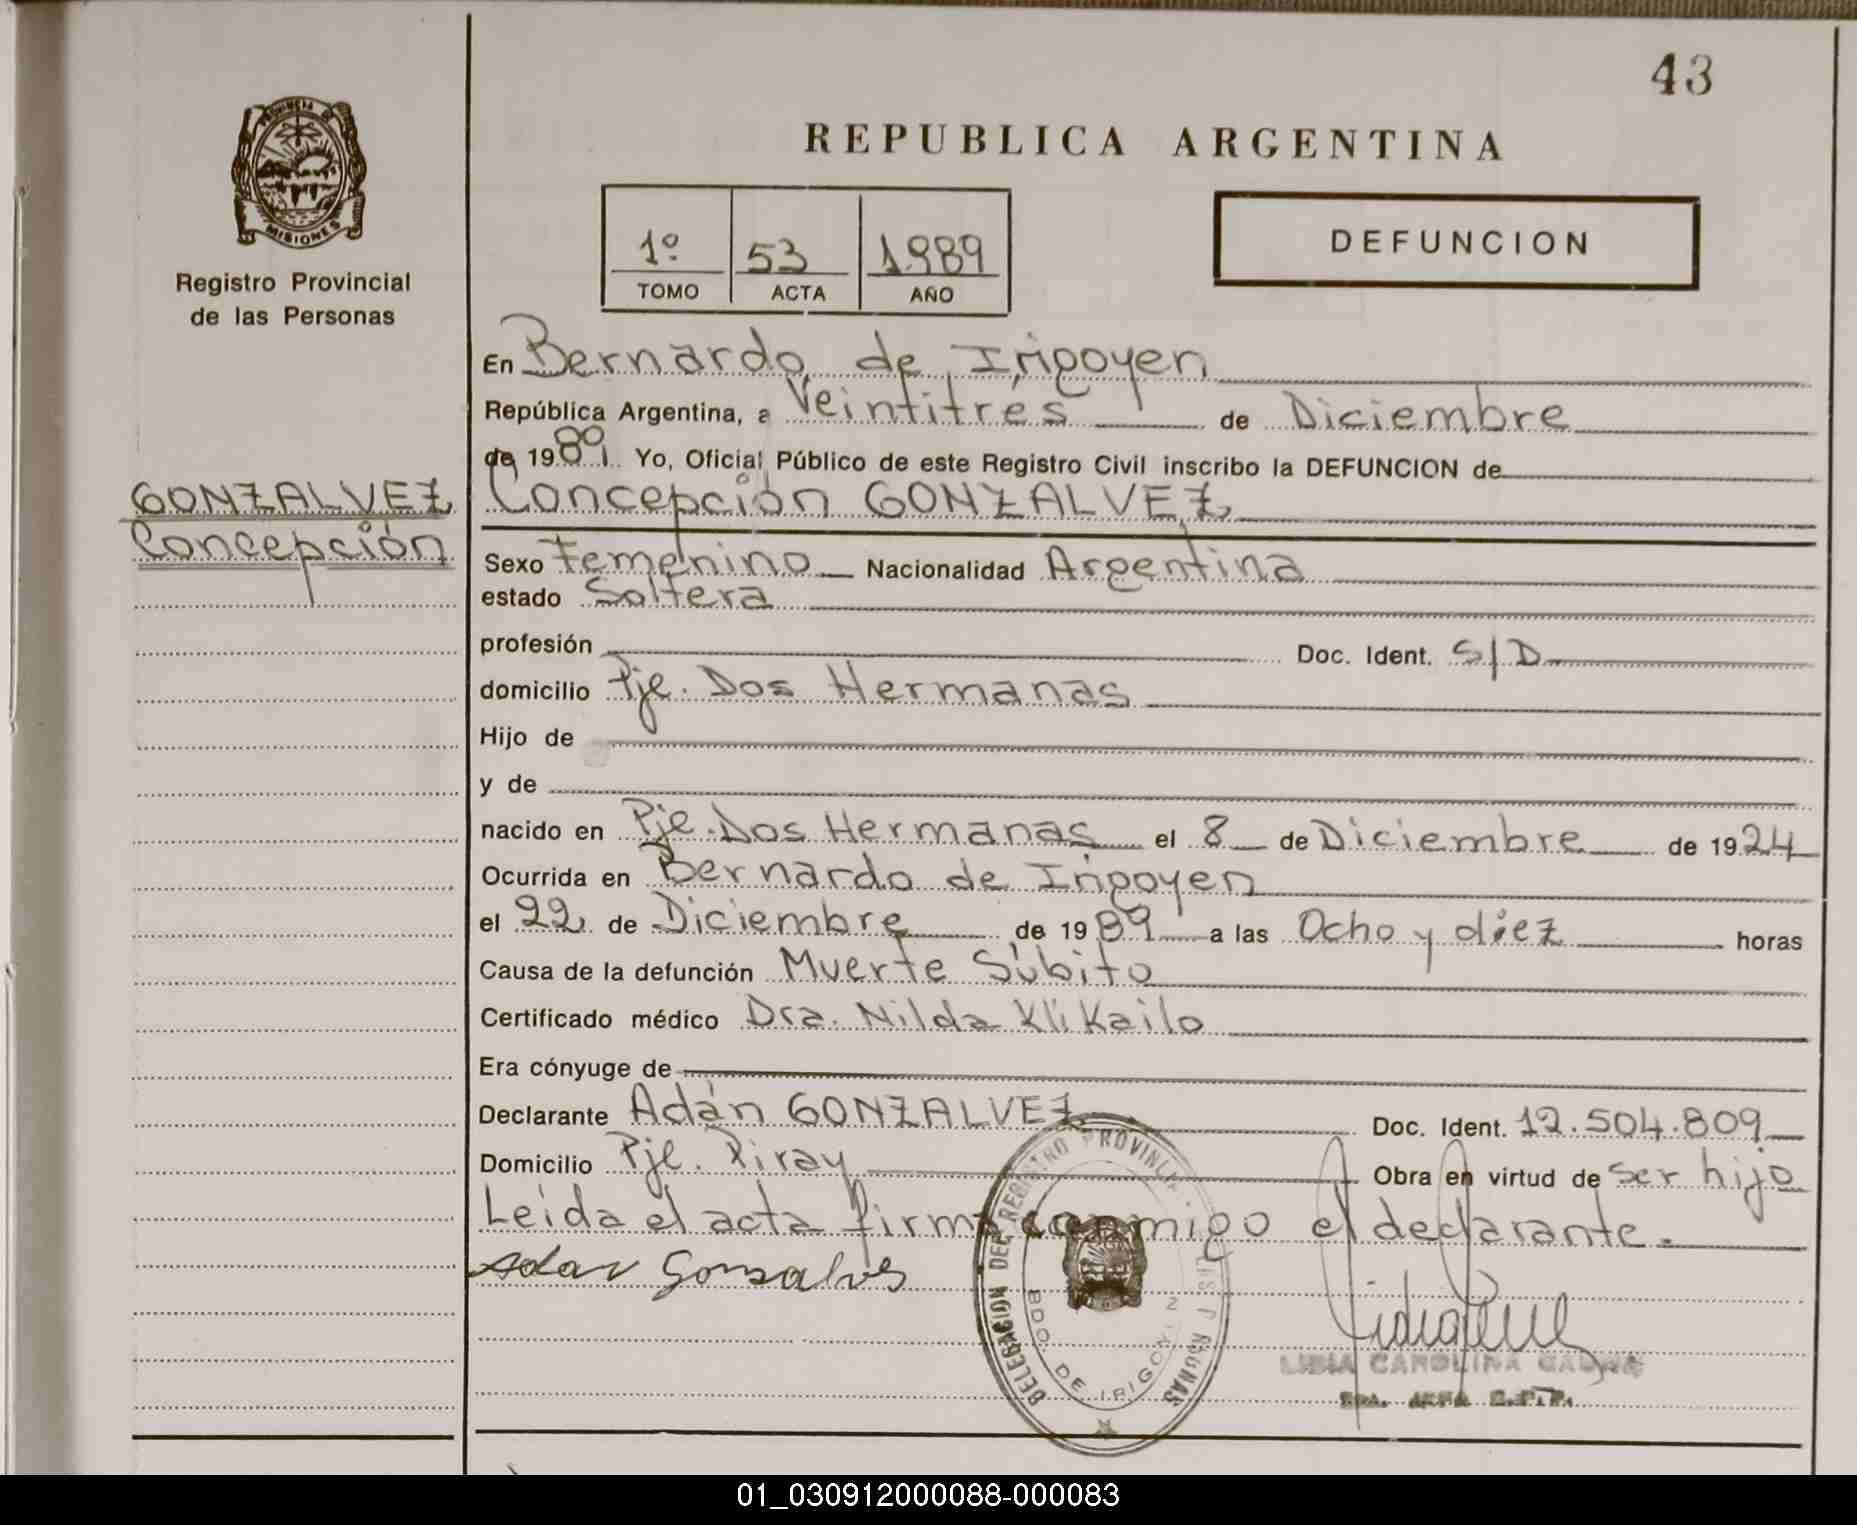 43
REPUBLICA ARGENTINA
PROVINCIA DE
MISIONES
Registro Provincial
de las Personas
1º 53 1989
TOMO ACTA AÑO
DEFUNCION
En Bernardo de Irigoyen
República Argentina, a Veintitres de Diciembre
de 1989. Yo, Oficial Público de este Registro Civil inscribo la DEFUNCION de
GONZALVEZ
Concepción
Concepción GONZALVEZ
Sexo Femenino Nacionalidad Argentina
estado Soltera
profesión Doc. Ident. S/D
domicilio Pje. Dos Hermanas
Hijo de
y de
nacido en Pje. Dos Hermanas el 8 de Diciembre de 1924
Ocurrida en Bernardo de Irigoyen
el 22 de Diciembre de 1989 a las Ocho y diez horas
Causa de la defunción Muerte Súbito
Certificado médico Dra. Nilda Klikailo
Era cónyuge de
Declarante Adán GONZALVEZ Doc. Ident. 12.504.809
Domicilio Pje. Piray Obra en virtud de ser hijo
Leida el acta firma conmigo el declarante.
Adan Gonsalves
DELEGACION DEL REGISTRO PROVINCIAL
BDO. DE IRIGOY
LIDIA CAROLINA
01_030912000088-000083